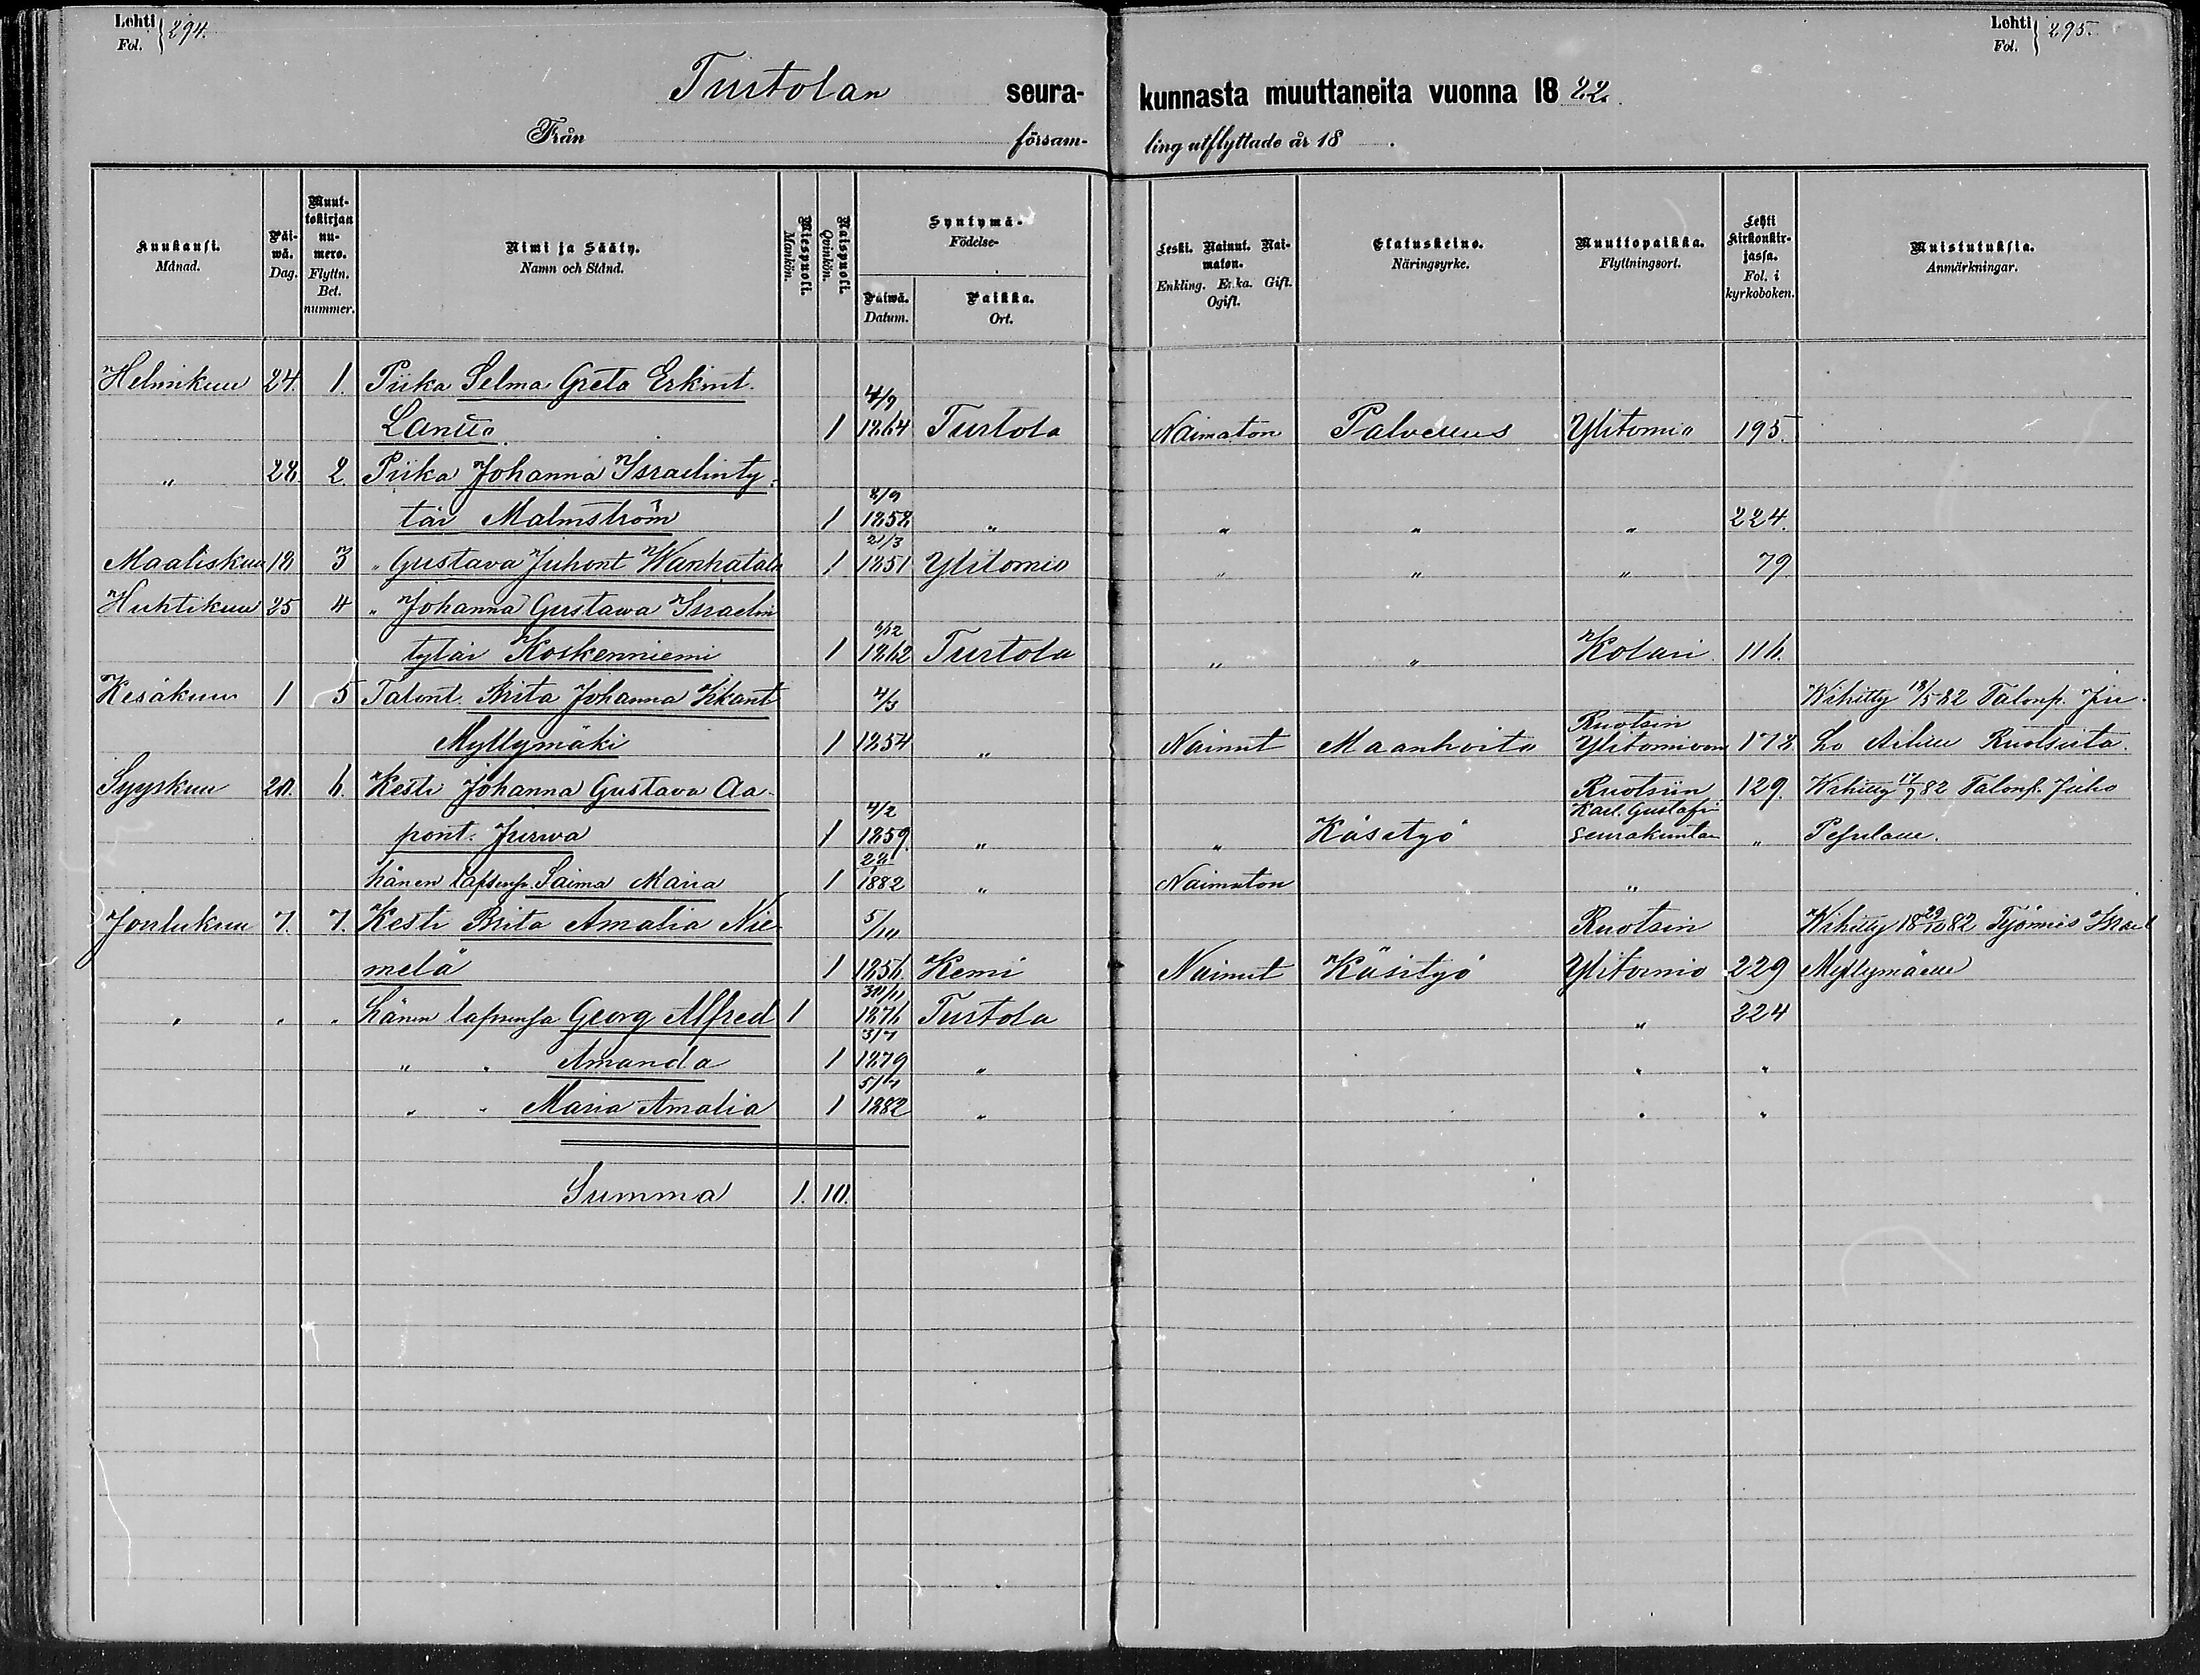 Lehti Fol. 294.
Lehti Fol. 295.
Turtolan seura- kunnasta muuttaneita vuonna 1882.
Från försam- ling utflyttade år 18 .
Kuukausi. Månad.
Päi- wä. Dag.
Muut- tokirjan nu- mero. Flyttn. Bet. nummer.
Nimi ja Sääty. Namn och Stånd.
Miespuoli. Mankön.
Naispuoli. Qvinkön.
Syntymä- Födelse-
Päiwä. Datum.
Paikka. Ort.
Leski. Nainut. Nai- maton. Enkling. Enka. Gift. Ogift.
Elatuskeino. Näringsyrke.
Muuttopaikka. Flyttningsort.
Lehti kirkonkir- jassa. Fol. i kyrkoboken.
Muistutuksia. Anmärkningar.
Helmikuu 24. 1. Piika Selma Greta Erkint. 4/9
1 1864 Turtola Naimaton Palvelus Ylitornio 195.
„ 28. 2. Piika Johanna Israelinty- 8/9
tär Malmström 1 1858 „ „ „ „ 224.
21/3
Maaliskuu 18 3 „ Gustava Juhont Wanhatalo 1 1851 Ylitornio „ „ „ 79.
Huhtikuu 25 4 „ Johanna Gustawa Israelin
tytär Koskenniemi 1 1862 Turtola „ „ Kolari. 116.
Kesäkuu 1 5 Talont. Brita Johanna 4/3 Wihitty 18/5 82 Talonp. Ju-
Ruotsin
Myllymäki 1 1854 „ Nainut Maanhoito Ylitornioon 178.
Syyskuu 20. 6. Kesti Johanna Gustava Aa- 4/2 Ruotsiin 129. Wihitty 82 Talonp. Juho
Karl Gustafin
pont. Jurwa 1 1859 „ „ Käsityö seurakuntaan „
28
hänen lapsensa Saima Maria 1 1882 „ Naimaton „
Joulukuu 7. 7. Kesti Brita Amalia Nie- 5/10 Ruotsin Wihitty 18 29/10 82 Työmies Israel
melä 1 1856 Kemi Nainut Käsityö Ylitornio 229
30/11
„ „ „ hänen lapsensa Georg Alfred 1 1876 Turtola „ 224
3/7
„ „ Amanda 1 1879 „ „ „
5/7
„ „ Maria Amalia 1 1882 „ „ „
Summa 1. 10.